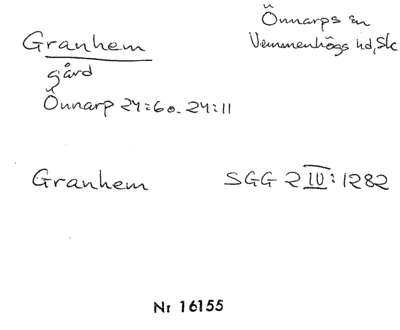 Granhem
gård
Önnarp 24:6 o. 24:11
Önnarps sn
Vemmenhögs hd, Sk
Granhem
SGG 2 IV:1282
Nr 16155